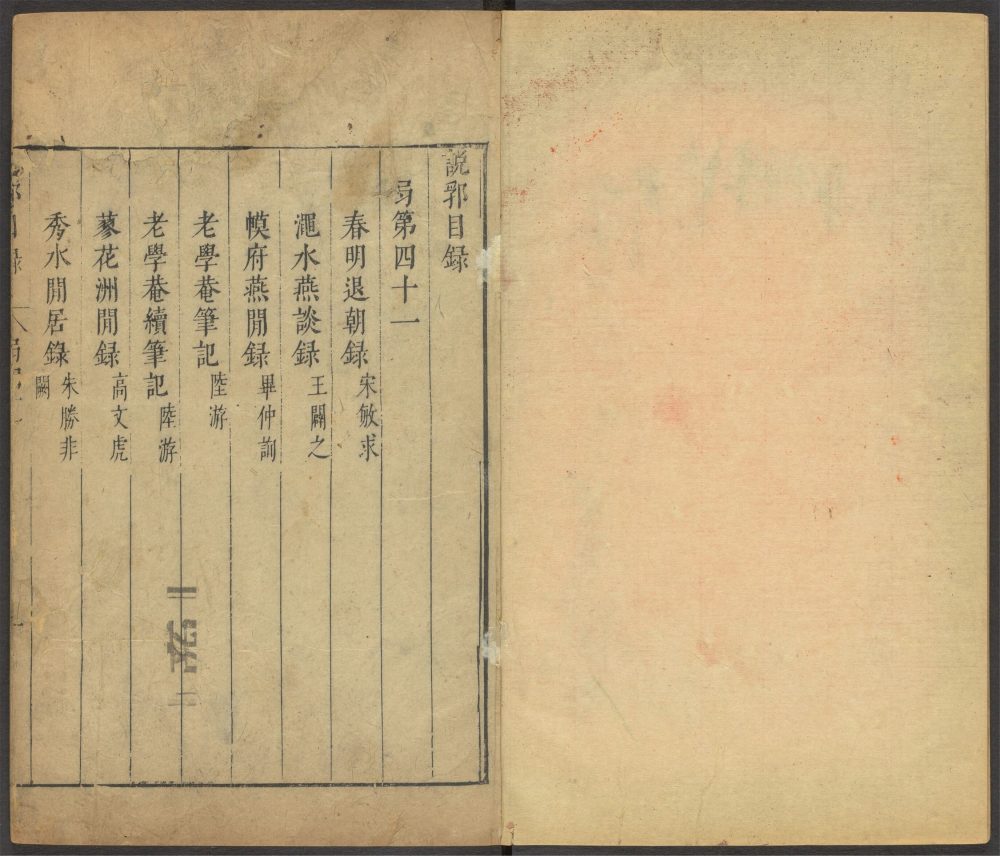 說郛目録
弓第四十一
春明退朝録 宋敏求
澠水燕談録 王闢之
幙府燕閒録 畢仲詢
老學菴筆記 陸游
老學菴續筆記 陸游
蓼花洲閒録 高文虎
秀水閒居錄 朱勝非
闕